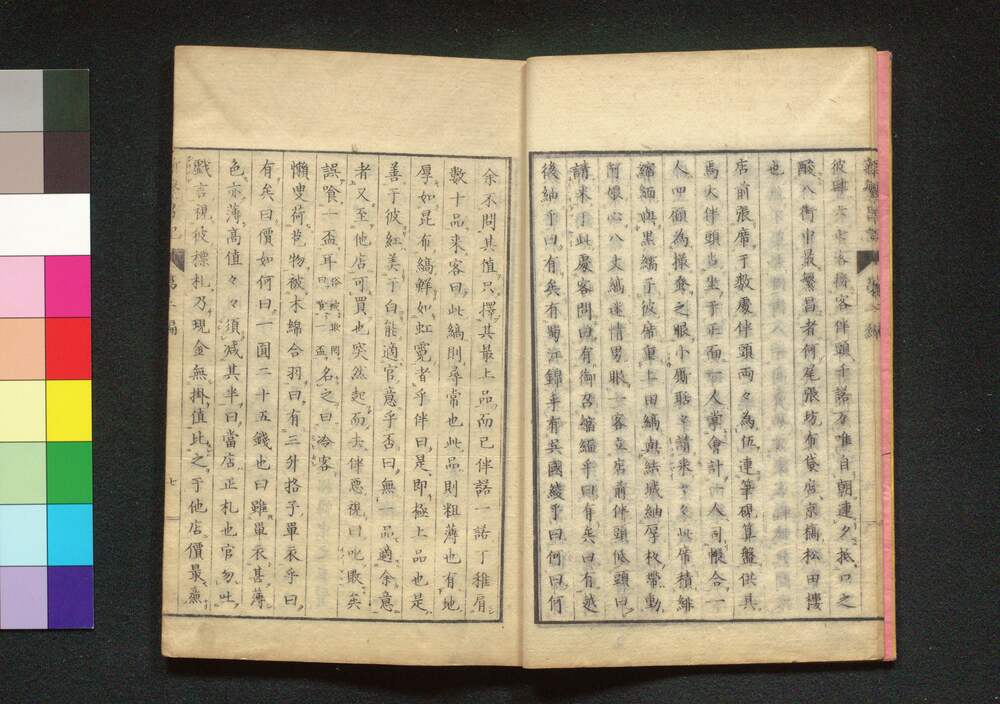 彼肆六七客衝客伴頭千諾万唯自朝連夕抵口之
酸八街中最繁昌者何尾張坊布袋店京橋松田摟
也
店前張席于数處伴頭両々為伍連筆硯算盤供具
馬大伴頭当坐于正面一人掌會計一人司帳合一
人四顧為撿察之眼小厮聒々請来々々此席積緋
縮緬與黒繻子彼席重上田縞與結城紬厚板帶動
阿娘心八丈縞迷情男眼一客立店前伴頭低頭曰
請来于此處客問曰有御召縮緬乎曰有矣曰有越
後紬乎曰有矣有蜀江錦乎有呉國綾乎曰何曰何
余不問其值只擇其最上品而已伴諾一諾丁稚肩
数十品来客曰此縞則尋常也此品則粗薄也有地
厚如昆布縞鮮如虹霓者乎伴曰是即極上品也是
善于彼紅美于白能適官意乎否曰無一品適余意
者又至他店可買也突然起而去伴惡視曰叱敗矣
誤喰一盃耳 名之曰冷客
懶叟荷芒物被木綿合羽曰有三升格子單衣乎曰
有矣曰價如何曰一圓二十五錢也曰雖單衣甚薄
色亦薄高值々々須减其半曰當店正札也官勿吐
戯言視彼標札乃現金無掛值比之于他店價最廉
七